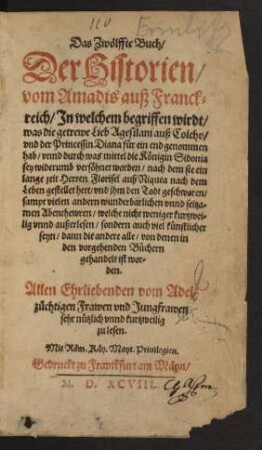 Das Zwölffte Buch/
Der Historien/
vom Amadis auß Franck-
reich/ In welchem begriffen wirdt/
was die getrewe Lieb Agesilani auß Colcho/
vnd der Princessin Diana für ein end genommen
hab/ vnnd durch was mittel die Königin Sidonia
sey widerumb versöhnet worden/ nach dem sie ein
lange zeit Herren Florisel auß Niquea nach dem
Leben gestellet hett/ vnd jhm den Todt geschworen/
sampt vielen andern wunderbarlichen vnnd seltza-
men Abenthewren/ welche nicht weniger kurtzwei-
lig vnnd außerlesen/ sondern auch viel künstlicher
seyn/ dann die andere alle/ von denen in
den vorgehenden Büchern
gehandelt ist wor-
den.
Allen Ehrliebenden vom Adel/
züchtigen Frawen vnd Jungfrawen
sehr nützlich vnnd kurtzweilig
zu lesen.
Mit Röm. Käy. Mayt. Privilegien.
Gedruckt zu Franckfurt am Mayn/
M. D. XCVIII.